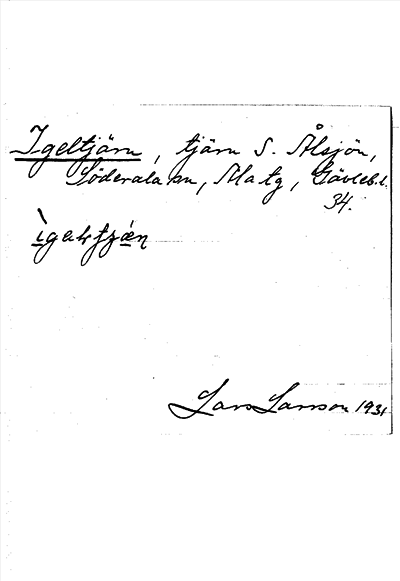 Igeltjärn, tjärn S. Ålsjön,
Söderala sn, Ala tg, Gävleb.l.
34.
Lars Larsson 1931